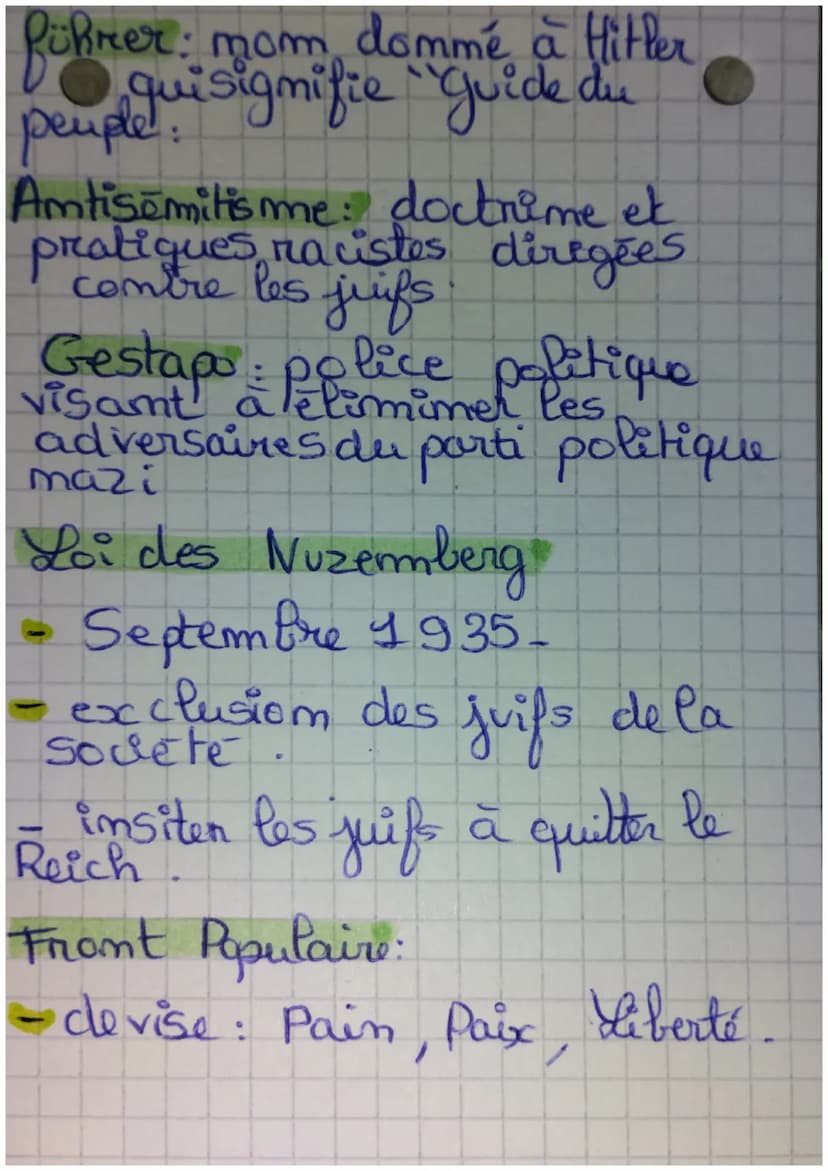 Führer : nom donné à Hitler
qui signifie "guide du
peuple.
Antisémitisme : doctrine et
pratiques racistes dirigées
contre les juifs.
Gestapo : police politique
visant à éliminer les
adversaires du parti politique
nazi
Loi des Nuremberg
- Septembre 1935-
- exclusion des juifs de la
société .
- insiter les juifs à quitter le
Reich .
Front Populaire:
- devise : Pain, Paix, Liberté.